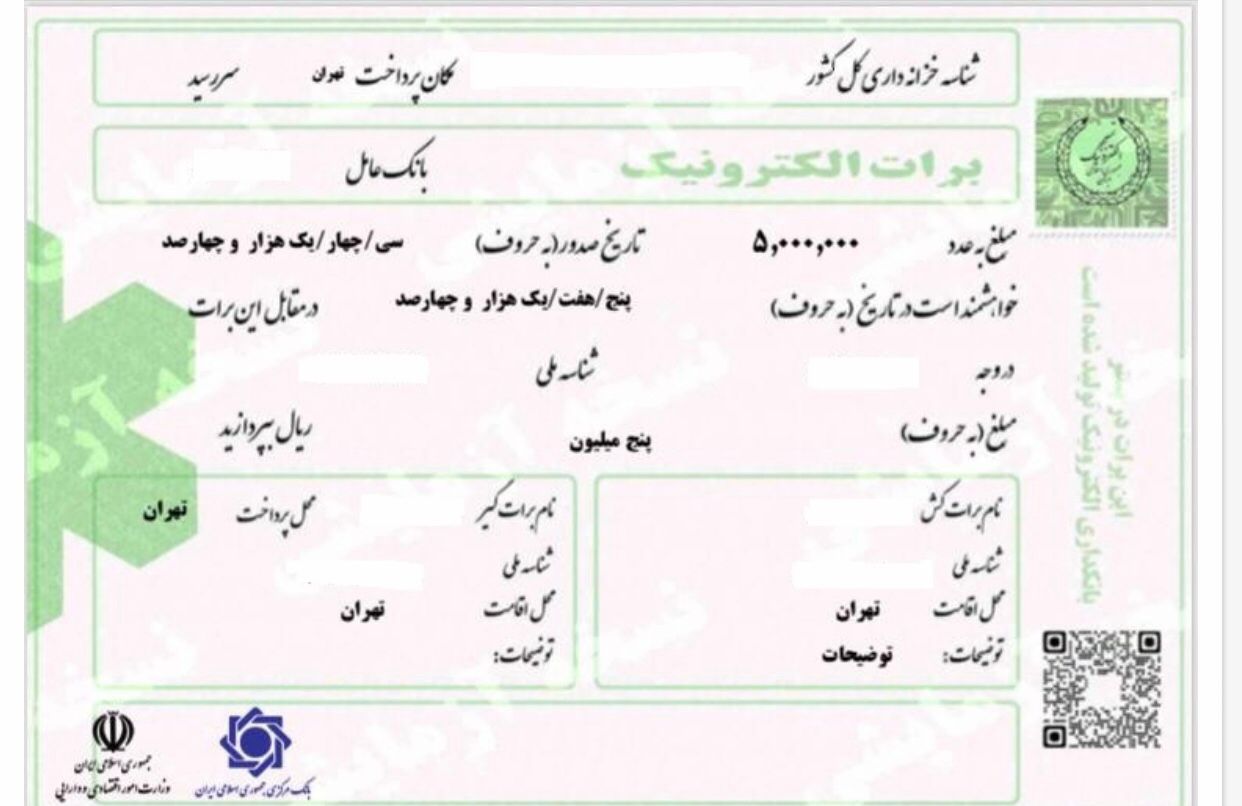 شناسه خزانه داری کل کشور
مکان پرداخت تهران سررسید
برات الکترونیک
بانک عامل
مبلغ به عدد ۵,۰۰۰,۰۰۰ تاریخ صدور(به حروف) سی/چهار/یک هزار و چهارصد
خواهشمند است در تاریخ (به حروف) پنج/هفت/یک هزار و چهارصد در مقابل این برات
در وجه شناسه ملی
مبلغ (به حروف) پنج میلیون ریال بپردازید
نام برات کش
شناسه ملی
محل اقامت تهران
توضیحات: توضیحات
نام برات گیر محل پرداخت تهران
شناسه ملی
محل اقامت تهران
توضیحات:
این برات در بستر
بانکداری الکترونیک تولید شده است
نسخه آزمایشی
بانک مرکزی جمهوری اسلامی ایران
جمهوری اسلامی ایران
وزارت امور اقتصادی و دارایی